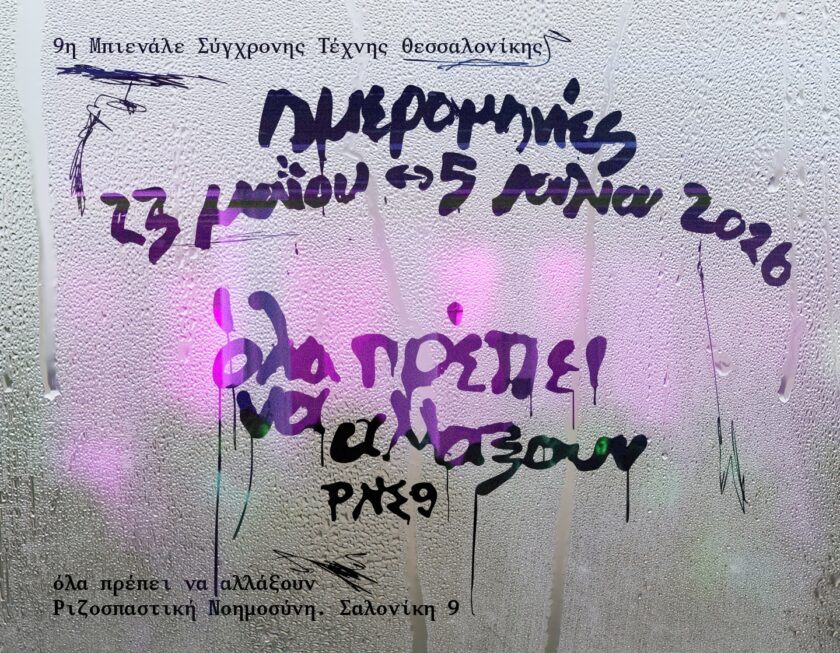 9η Μπιενάλε Σύγχρονης Τέχνης Θεσσαλονίκης
ημερομηνίες
23 μαΐου ↔ 5 2026
όλα πρέπει
να
αλλάξουν
ΡΝΣ9
όλα πρέπει να αλλάξουν
Ριζοσπαστική Νοημοσύνη. Σαλονίκη 9